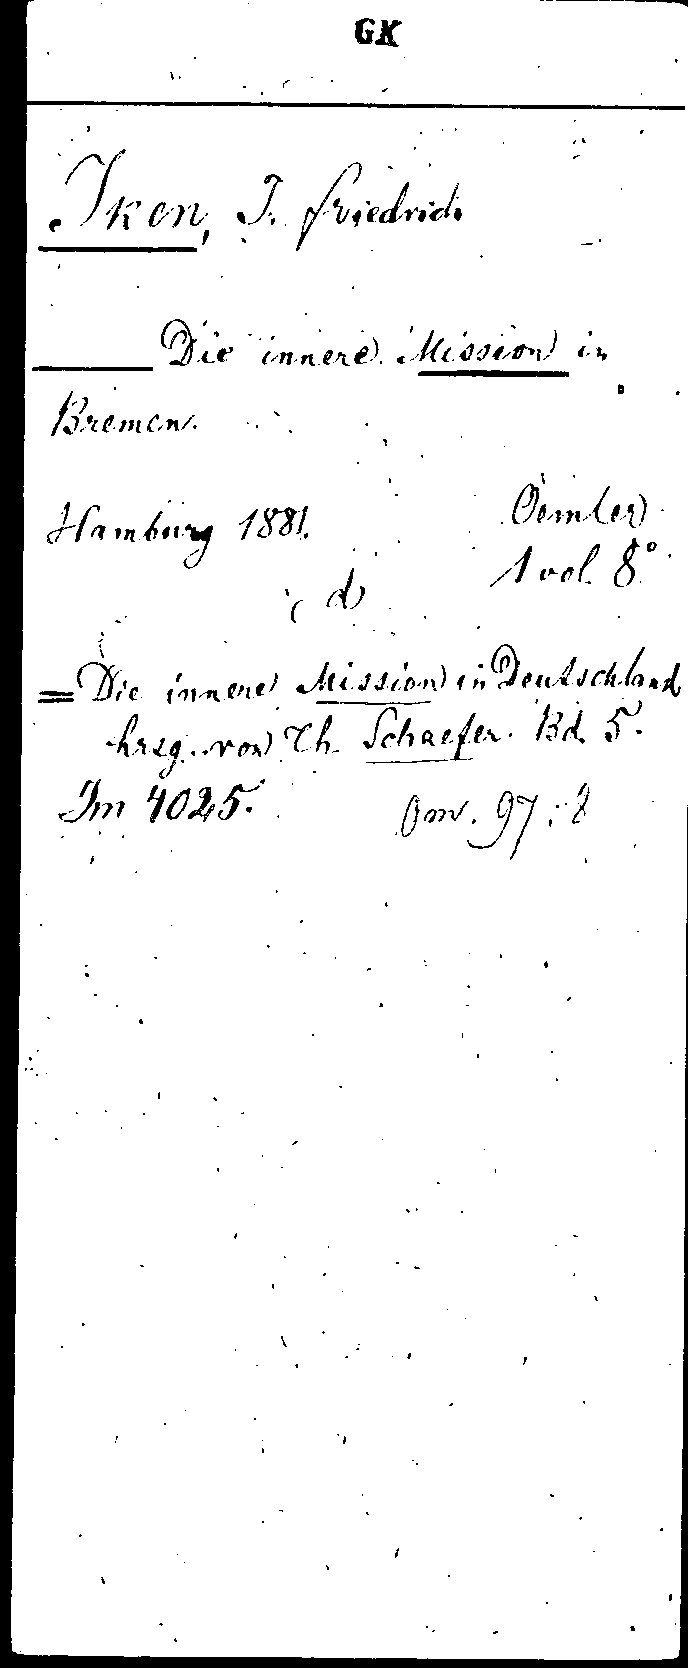 GK
Iken, J. Friedrich
Die innere Mission in
Bremen.
Hamburg 1881. Oemler
1 vol. 8°
(d)
= Die innere Mission in Deutschland
hrsg. von Th. Schaefer. Bd. 5.
Im 4025. 97